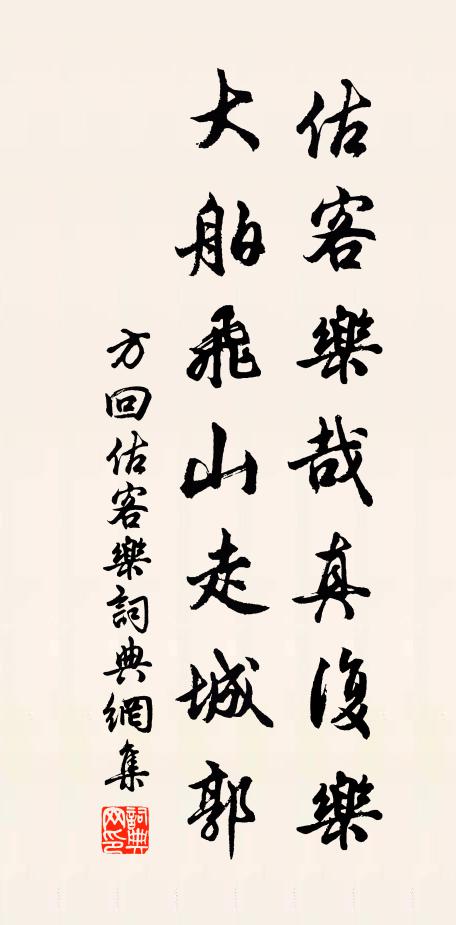 估客樂哉真復樂
大舶飛山走城郭
方回估客樂詞典網集
詞典
网印